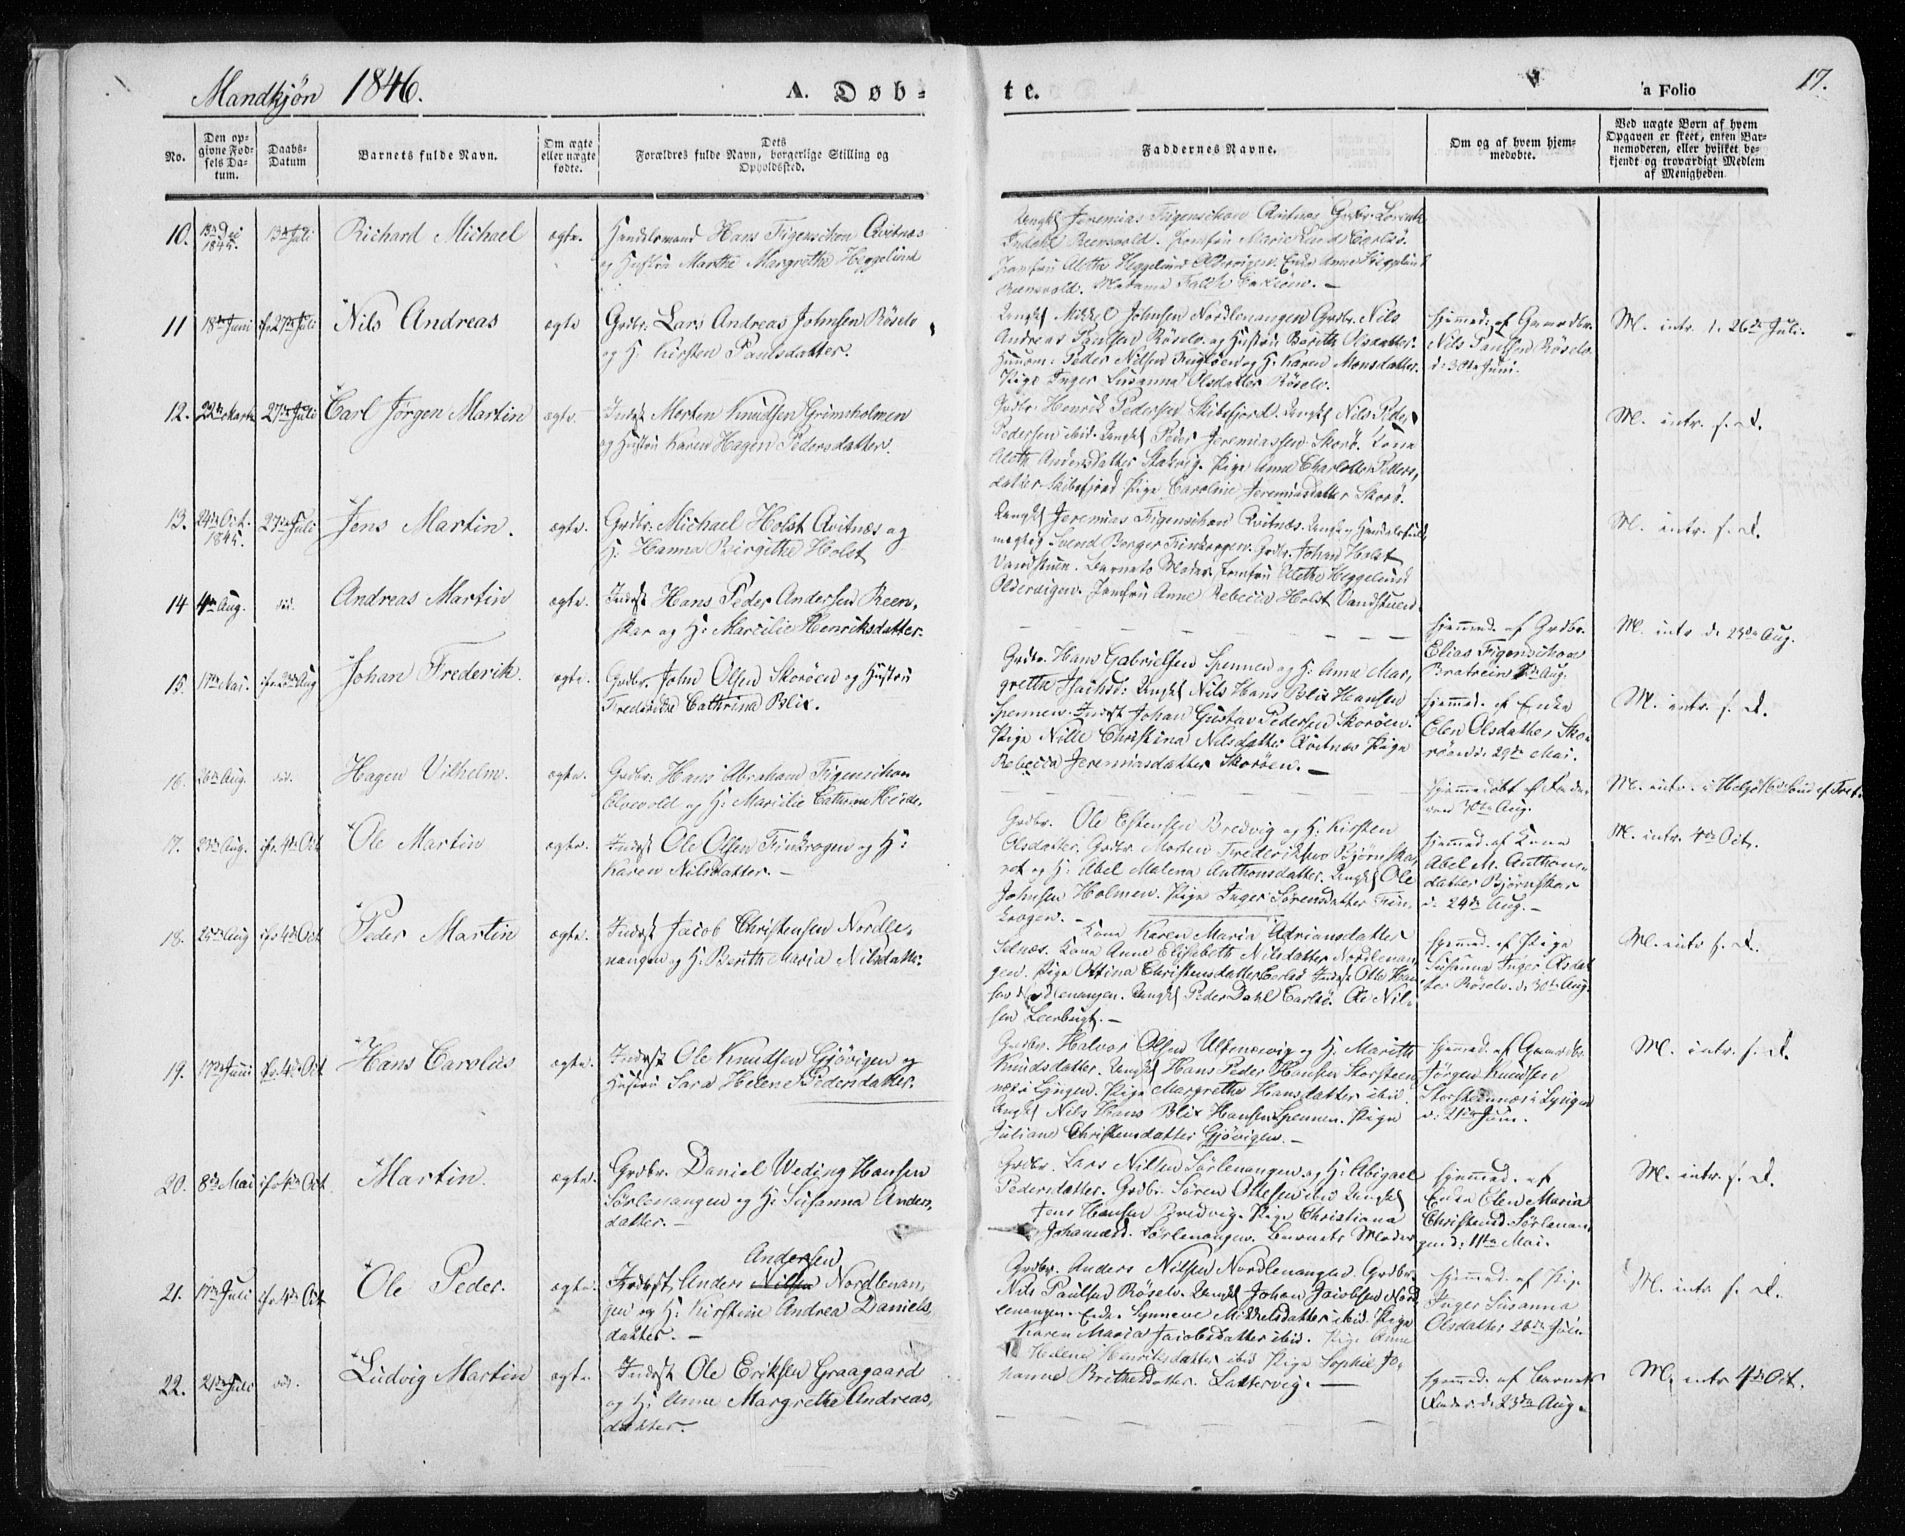 Mandkjøn 1846. A. Døb-
te. 'a Folio 17.
No.
Den op-
givne Fød-
sels Da-
tum.
Daabs-
Datum
Barnets fulde Navn.
Om ægte
eller uægte
fødte.
Dets
Forældres fulde Navn, borgerlige Stilling og
Opholdssted.
Faddernes Navne.
Om og af hvem hjem-
medøbte.
Ved uægte Børn af hvem
Opgaven er skeet, enten Bar-
nemoderen, eller hvilket be-
kjendt og troværdigt Medlem
af Menigheden
10. 13de Juli Richard Michael ægte. Handelsmand Hans Figenschou Qvitnæs
1845.
og Hustru Marthe Margrethe Heggelund
Ungkl Jeremias Figenschou Qvitnæs
Reensvold. Jomfru Marie Lund Carlsø.
Jomfru Alethe Heggelund Oldervigen. Enke Anne Heggelund
Reensvold. Madame Falch Carlsøen. —
11 18de Juni 27de Juli Nils Andreas ægte Grdbr. Lars Andreas Johnsen Röselv
og H. Kirsten Paulsdatter.
Ungkl Johnsen Nordlenangen Grdbr. Nils
Andreas Paulsen Röselv og Hustru Berith Olsdatter.
Peder Nilsen og H. Karen Monsdatter.
Pige Inger Susanna Olsdatter Röselv.
hjemmed. af Gaardbr.
Nils Paulsen Röselv
d. 30te Juni.
M. intr. d. 26de Juli.
12. 27de Juli Carl Jørgen Martin ægte. Indrst Morten Knudsen Grimsholmen
og Hustru Karen Hagen Pedersdatter.
Grdbr. Henrik Pedersen Skibsfjord. Ungkl Nils Peder
Pedersen ibid. Ungkl Peder Jeremiassen Skorø. Kone
Aleth Andersdatter Pige Anne Charlotte Peders,
datter Skibsfjord Pige Caroline Jeremiasdatter Skorø.
M. intr. f. D.
13. 24de Oct. 27de Juli Jens Martin. ægte. Grdbr. Michael Holst Qvitnæs og
1845.
H. Hanna Birgithe Holst
Ungkl Jeremias Figenschou Qvitnæs.
Svend Borger Finkrogen. Grdbr. Johan Holst
Vandstuen. Barnets Moder. Jomfru Alethe Heggelund
Oldervigen. Jomfru Anne Rebecca Holst Vandstuen.
M. intr. f. D.
14 4de Aug. Andreas Martin ægte. Indrst Hans Peder Andersen Reen-
skar og H. Marcilie Henriksdatter.
hjemmed. af Grdbr.
Elias Figenschou
Bratrein Aug.
M. intr. d. 23de Aug.
15. 17de Mai. Johan Frederik. ægte. Grdbr. John Olsen Skorøen og Hustru
Fredrikke Cathrina Blix.
Grdbr. Hans Gabrielsen Spennen og H. Anne Mar,
grethe Ungkl Nils Hans Blix Hansen
Spennen. Indrst Johan Gustav Pedersen Skorøen.
Pige Nille Christina Nilsdatter Qvitnæs Pige
Rebecca Jeremiasdatter Skorøen. —
hjemmed. af Enke
Elen Olsdatter Sko-
røen d. 29de Mai.
M. intr. f. D.
16. 26de Aug. Hagen Vilhelm. ægte. Grdbr. Hans Abraham Figenschou
Elvevold og H. Marcilie Cathrine Heide.
hjemmedøbt af
30te Aug.
M. intr. i
17. 23de Aug. 4de Oct Ole Martin ægte. Indrst Ole Olsen Finkrogen og H:
Karen Nilsdatter. —
Grdbr. Ole Estensen Bredvig og H. Kirsten
Olsdatter. Grdbr. Morten Frederiksen Bjørnska-
ret og H. Abel Malena Anthonsdatter. Ungkl Ole
Johnsen Holmen. Pige Inger Sørensdatter Fin-
krogen. —
hjemmed. af Kone
Abel M. Anthons-
datter Bjørnskar
d. 24de Aug. —
M. intr. 4de Oct.
18. 25de Aug 4de Oct Peder Martin ægte. Indrst Jacob Christensen Nordle-
nangen og H. Berith Maria Nilsdatter.
Kone Karen Maria Adriansdatter
Kone Anne Elisabeth Nilsdatter Nordlenan,
gen. Pige Ottina Christensdatter Carlsø Indrst Otte Han-
sen Nordlenangen. Ungkl Peder Dahl Carlsø. Ole Nil-
sen Leerbugt. —
hjemmed. af Pige
Susanna Inger Olsdat
ter Röselv. d. 30te Aug.
M. intr f. D.
19. 17de Juni 4de Oct Hans Carolus ægte. Indrst Ole Knudsen Gjøvigen og
Hustru Sara Helene Pedersdatter.
Grdbr. Halvor Olsen Ulfnesvig og H. Marith
Knudsdatter. Ungkl Hans Peder Hansen Storsteen
næs i Lyngen. Pige Margrethe Hansdatter ibid.
Ungkl Nils Hans Blix Hansen Spennen. Pige
Juliane Christensdatter Gjøvigen. —
hjemmed. af Gaardbr.
Jørgen Knudsen
Storsteennæs i Lyngen
d. 21de Juni.
M. intr. f. D.
20. 8de Mai 4de Oct. Martin. ægte. Grdbr. Daniel Weding Hansen
Sørlenangen og H. Susanna Anders,
datter. —
Grdbr. Lars Nilsen Sørlenangen og H. Abigael
Pedersdatter. Grdbr. Søren Ottesen ibid Ungkl
Jens Hansen Bredvig. Pige Christiana
Johansd. Sørlenangen. Barnets Moder
hjemmed. af
Enke Elen Maria
Christensd. Sørlenan-
gen d. 11te Mai.
M. intr. f. D.
Andersen
21. 17de Juli 4de Oct Ole Peder. ægte. Indrst Anders Nilsen Nordlenan,
gen og H. Kirstine Andrea Daniels,
datter. —
Grdbr. Anders Nilsen Nordlenangen. Grdbr.
Nils Paulsen Röselv. Ungkl Johan Jacobsen Nord
lenangen. Enke Synneve Mikkelsdatter ibid. Pige
Karen Maria Jacobsdatter ibid. Pige Anne
Helene Henriksdatter ibid Pige Sophie Jo-
hanne Brithesdatter. Lattervig. —
hjemmed. af Pige
Inger Susanna
Olsdatter 26de Juli.
M. intr f. D.
22. 21de Juli Ludvig Martin ægte. Indrst Ole Eriksen Graagaard
og H. Anne Margrethe Andreas,
datter.
hjemmed. af Barnets
Fader d. 23de Aug.
M. intr 4de Oct.